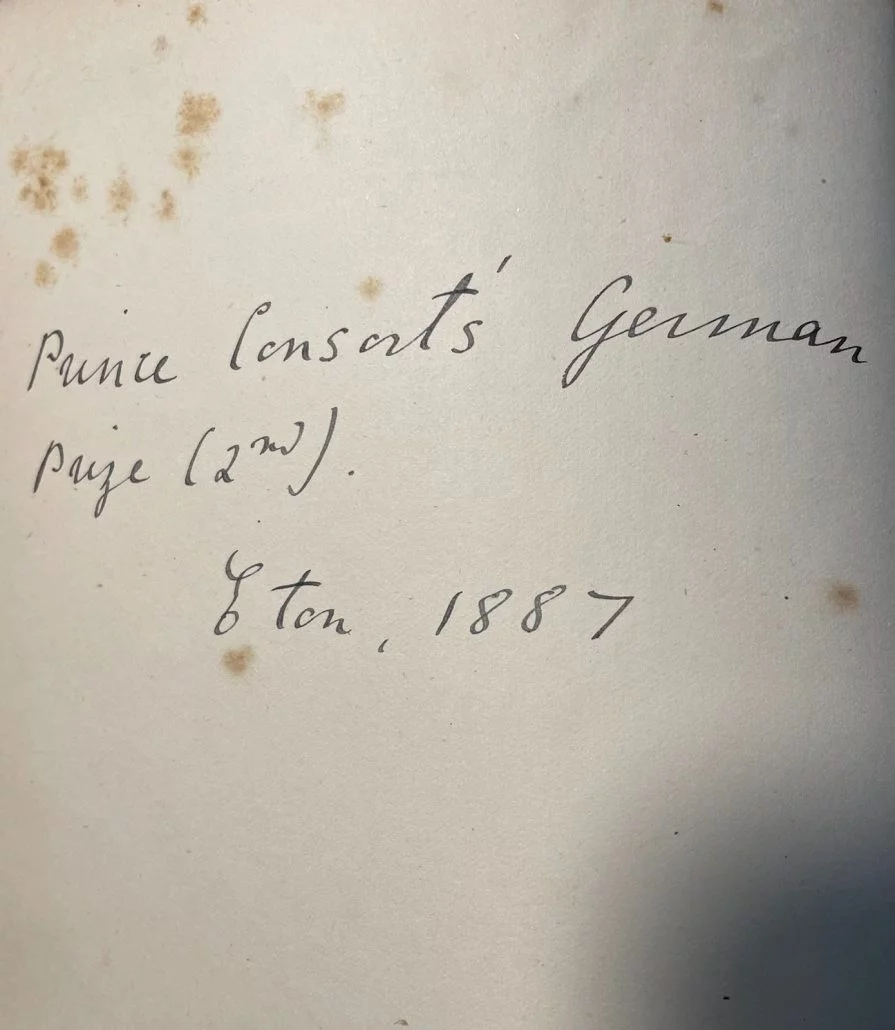 Prince Consort's German
Prize (2nd).
Eton, 1887